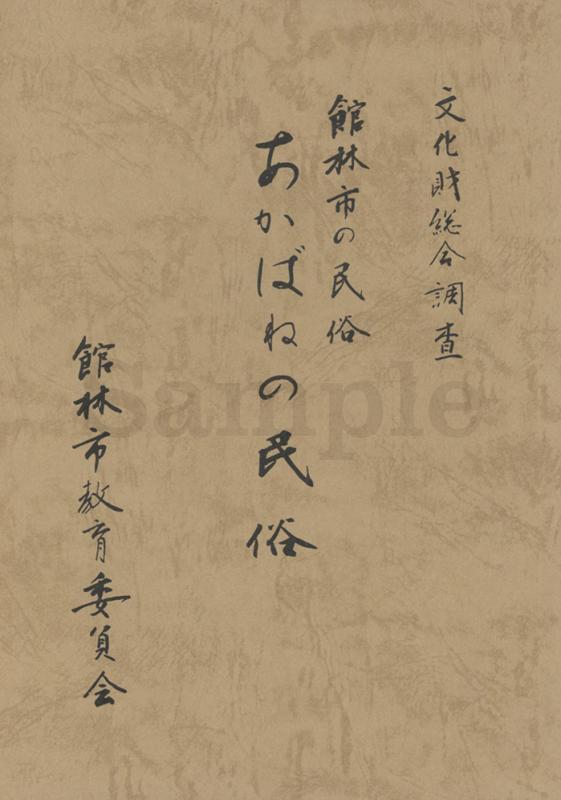 文化財総合調査
館林市の民俗
あかばねの民俗
館林市教育委員会
Sample